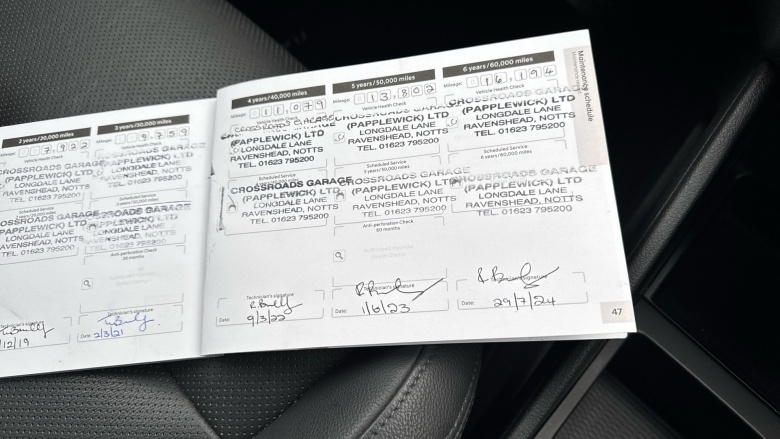 2 years/20,000 miles
Mileage: 07,922
Vehicle Health Check
CROSSROADS GARAGE
(PAPPLEWICK) LTD
LONGDALE LANE
RAVENSHEAD, NOTTS
TEL. 01623 795200
Scheduled Service
CROSSROADS GARAGE
(PAPPLEWICK) LTD
LONGDALE LANE
RAVENSHEAD, NOTTS
TEL. 01623 795200
Technician's signature
/12/19
3 years/30,000 miles
Mileage: 9,759
Vehicle Health Check
(PAPPLEWICK) LTD
LONGDALE LANE
RAVENSHEAD, NOTTS
TEL. 01623 795200
Scheduled Service
3 years/30,000 miles
CROSSROADS GARAGE
(PAPPLEWICK) LTD
LONGDALE LANE
RAVENSHEAD, NOTTS
TEL. 01623 795200
Anti-perforation Check
36 months
Technician's signature
Date: 2/3/21
4 years/40,000 miles
Mileage: 011,079
Vehicle Health Check
CROSSROADS GARAGE
(PAPPLEWICK) LTD
LONGDALE LANE
RAVENSHEAD, NOTTS
TEL. 01623 795200
Scheduled Service
CROSSROADS GARAGE
(PAPPLEWICK) LTD
LONGDALE LANE
RAVENSHEAD, NOTTS
TEL. 01623 795200
Technician's signature
Date: 9/3/22
5 years/50,000 miles
Mileage: 013,802
Vehicle Health Check
CROSSROADS GARAGE
(PAPPLEWICK) LTD
LONGDALE LANE
RAVENSHEAD, NOTTS
TEL. 01623 795200
Scheduled Service
5 years/50,000 miles
CROSSROADS GARAGE
(PAPPLEWICK) LTD
LONGDALE LANE
RAVENSHEAD, NOTTS
TEL. 01623 795200
Anti-perforation Check
60 months
Technician's signature
Date: 1/6/23
6 years/60,000 miles
Mileage: 016,194
Vehicle Health Check
CROSSROADS GARAGE
(PAPPLEWICK) LTD
LONGDALE LANE
RAVENSHEAD, NOTTS
TEL. 01623 795200
Scheduled Service
6 years/60,000 miles
CROSSROADS GARAGE
(PAPPLEWICK) LTD
LONGDALE LANE
RAVENSHEAD, NOTTS
TEL. 01623 795200
Technician's signature
Date: 29/7/24
Maintenance schedule
47